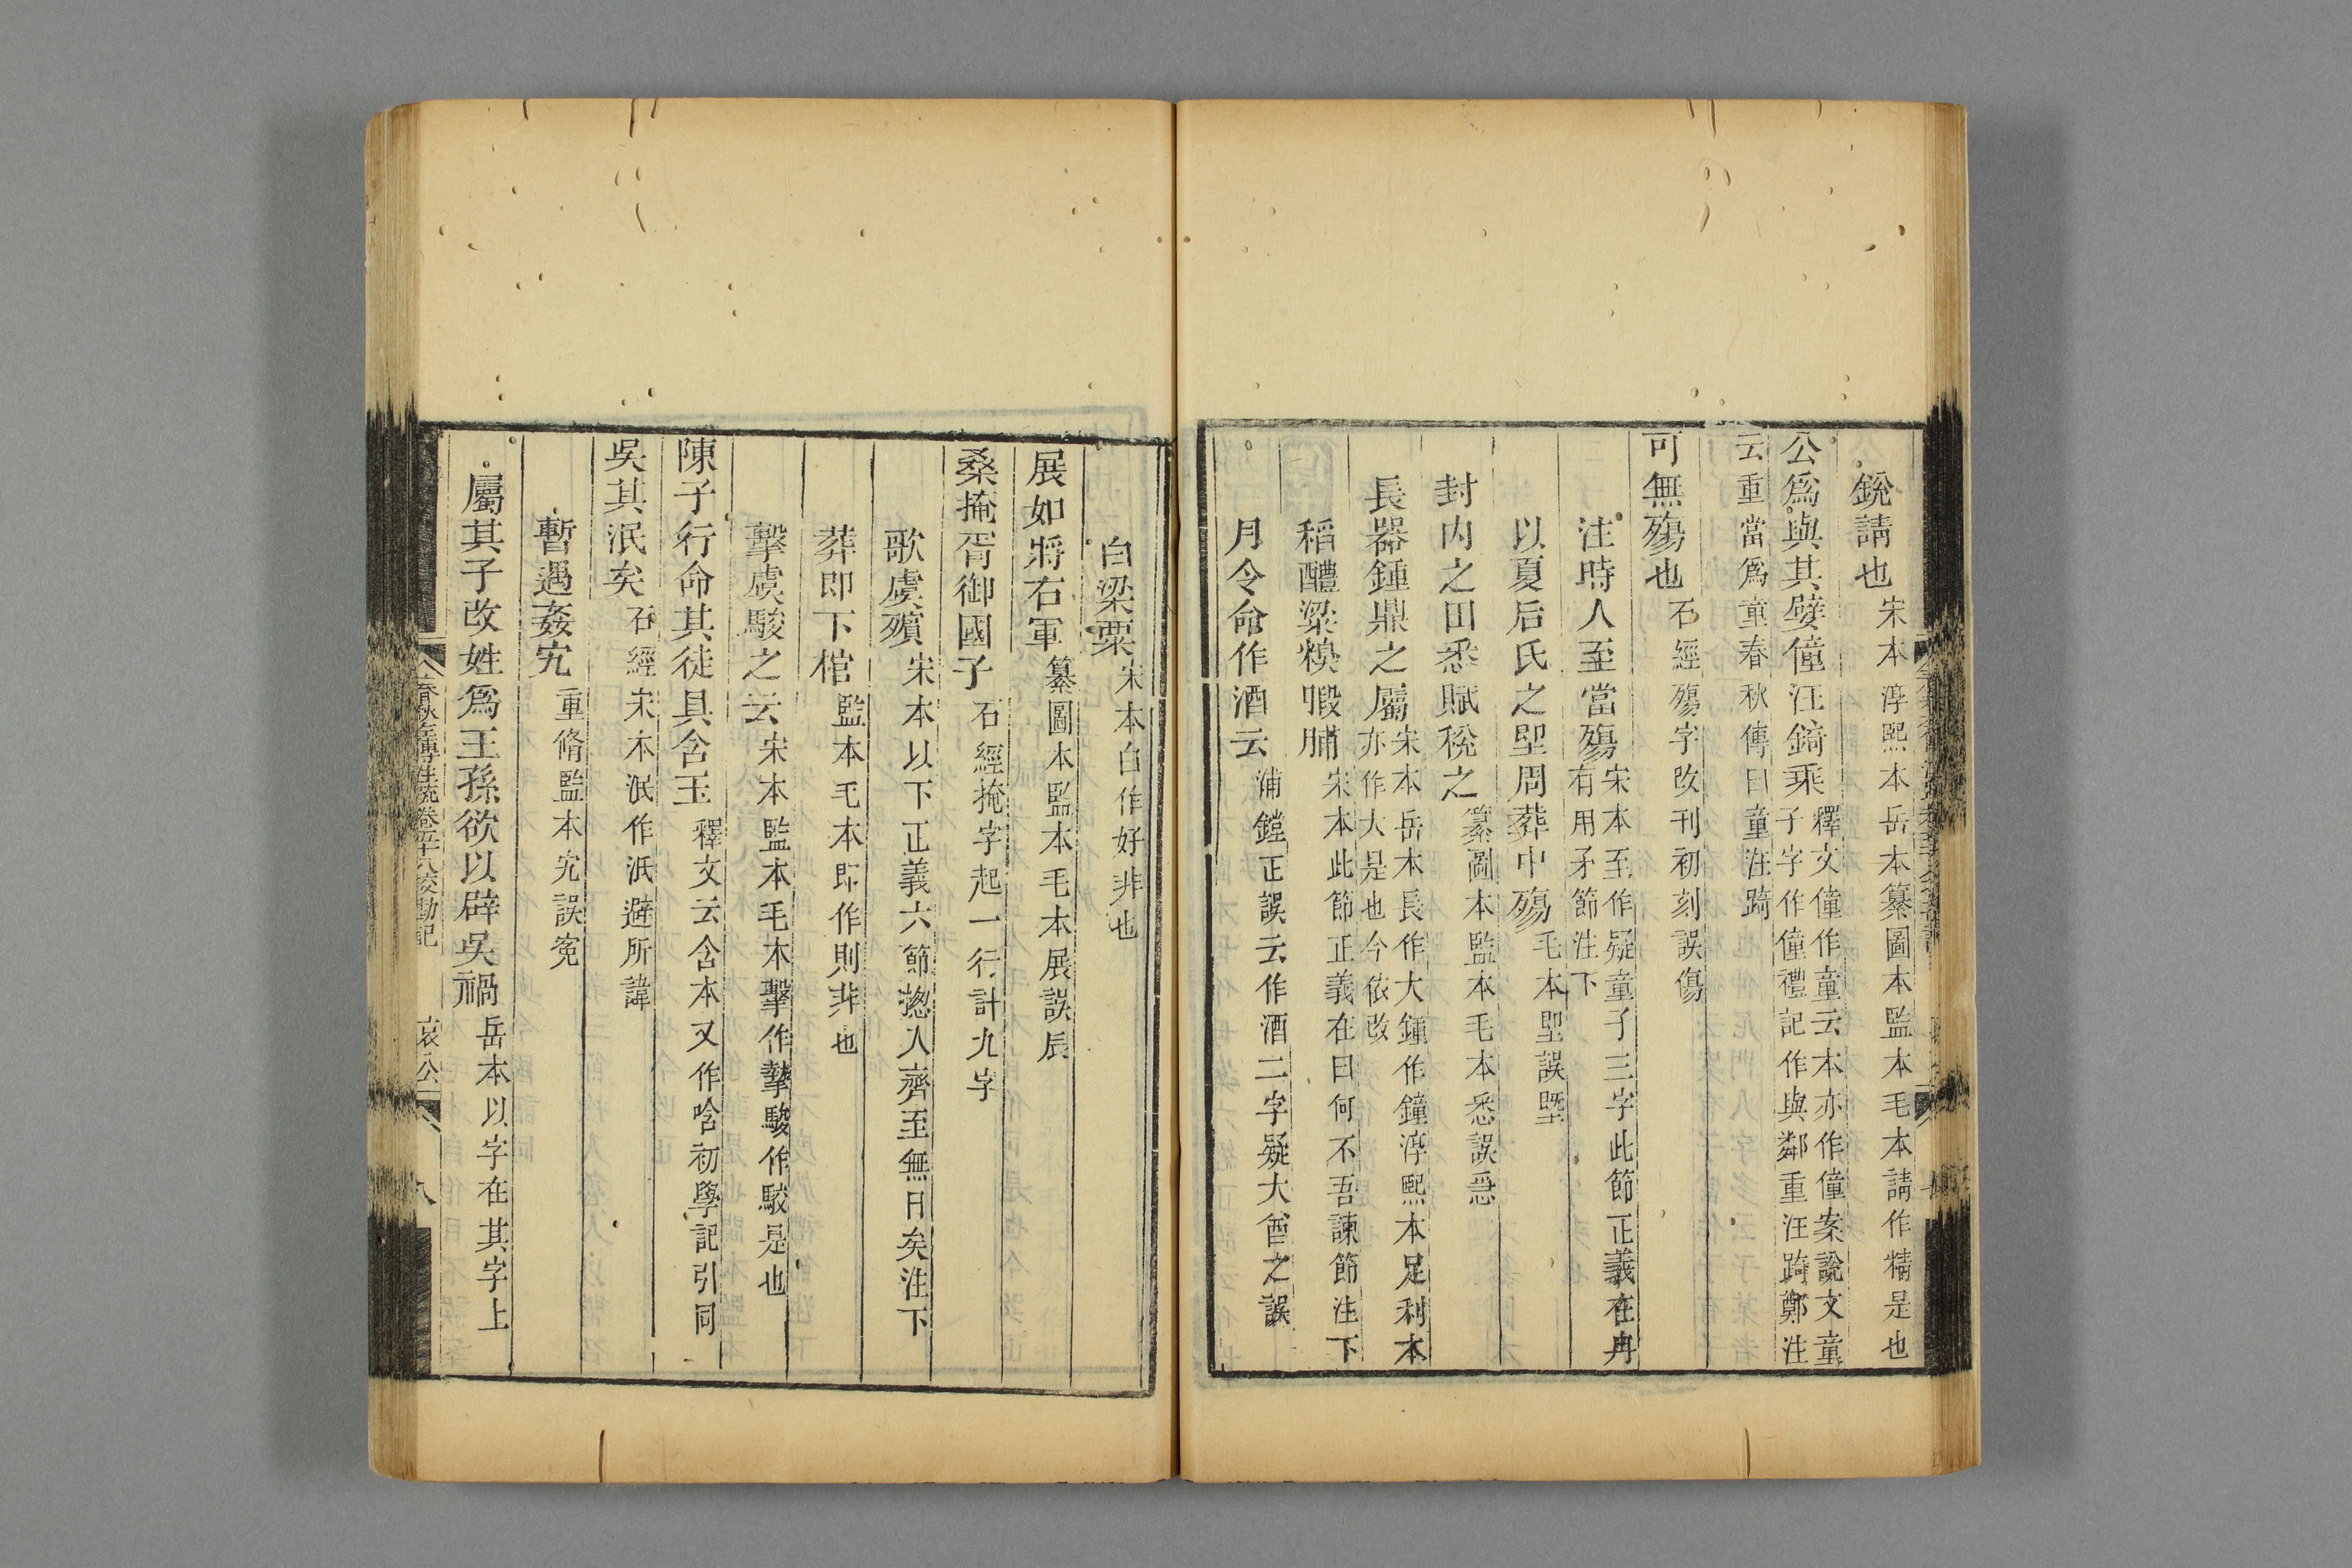 銳請也宋本淳熙本岳本纂圖本監本毛本請作精是也
公爲與其嬖僮汪錡乘釋文僮作童云本亦作僮案說文童子字作僮禮記作與鄰重汪踦鄭注
云重當爲童春秋傳曰童汪踦
可無殤也石經殤字改刊初刻誤傷
注時人至當殤宋本至作疑童子三字此節正義在冉有用矛節注下
以夏后氏之堲周葬中殤毛本堲誤塈
封內之田悉賦稅之纂圖本監本毛本悉誤悉
長器鍾鼎之屬宋本岳本長作大鍾作鐘淳熙本足利本亦作大是也今依改
稻醴粱糗腶脯宋本此節正義在曰何不吾諫節注下
月令命作酒云浦鏜正誤云作酒二字疑大酋之誤
白梁粟宋本白作好非也
展如將右軍纂圖本監本毛本展誤辰
桑掩胥御國子石經掩字起一行計九字
歌虞殯宋本以下正義六節揔入齊至無日矣注下
葬即下棺監本毛本即作則非也
鞏虞駿之云宋本監本毛本鞏作摯駿作駮是也
陳子行命其徒具含玉釋文云含本又作唅初學記引同
吳其泯矣石經宋本泯作泜避所諱
暫遇姦宄重脩監本宄誤寃
屬其子改姓爲王孫欲以辟吳禍岳本以字在其字上
春秋左傳注疏卷五十八校勘記 哀公 八